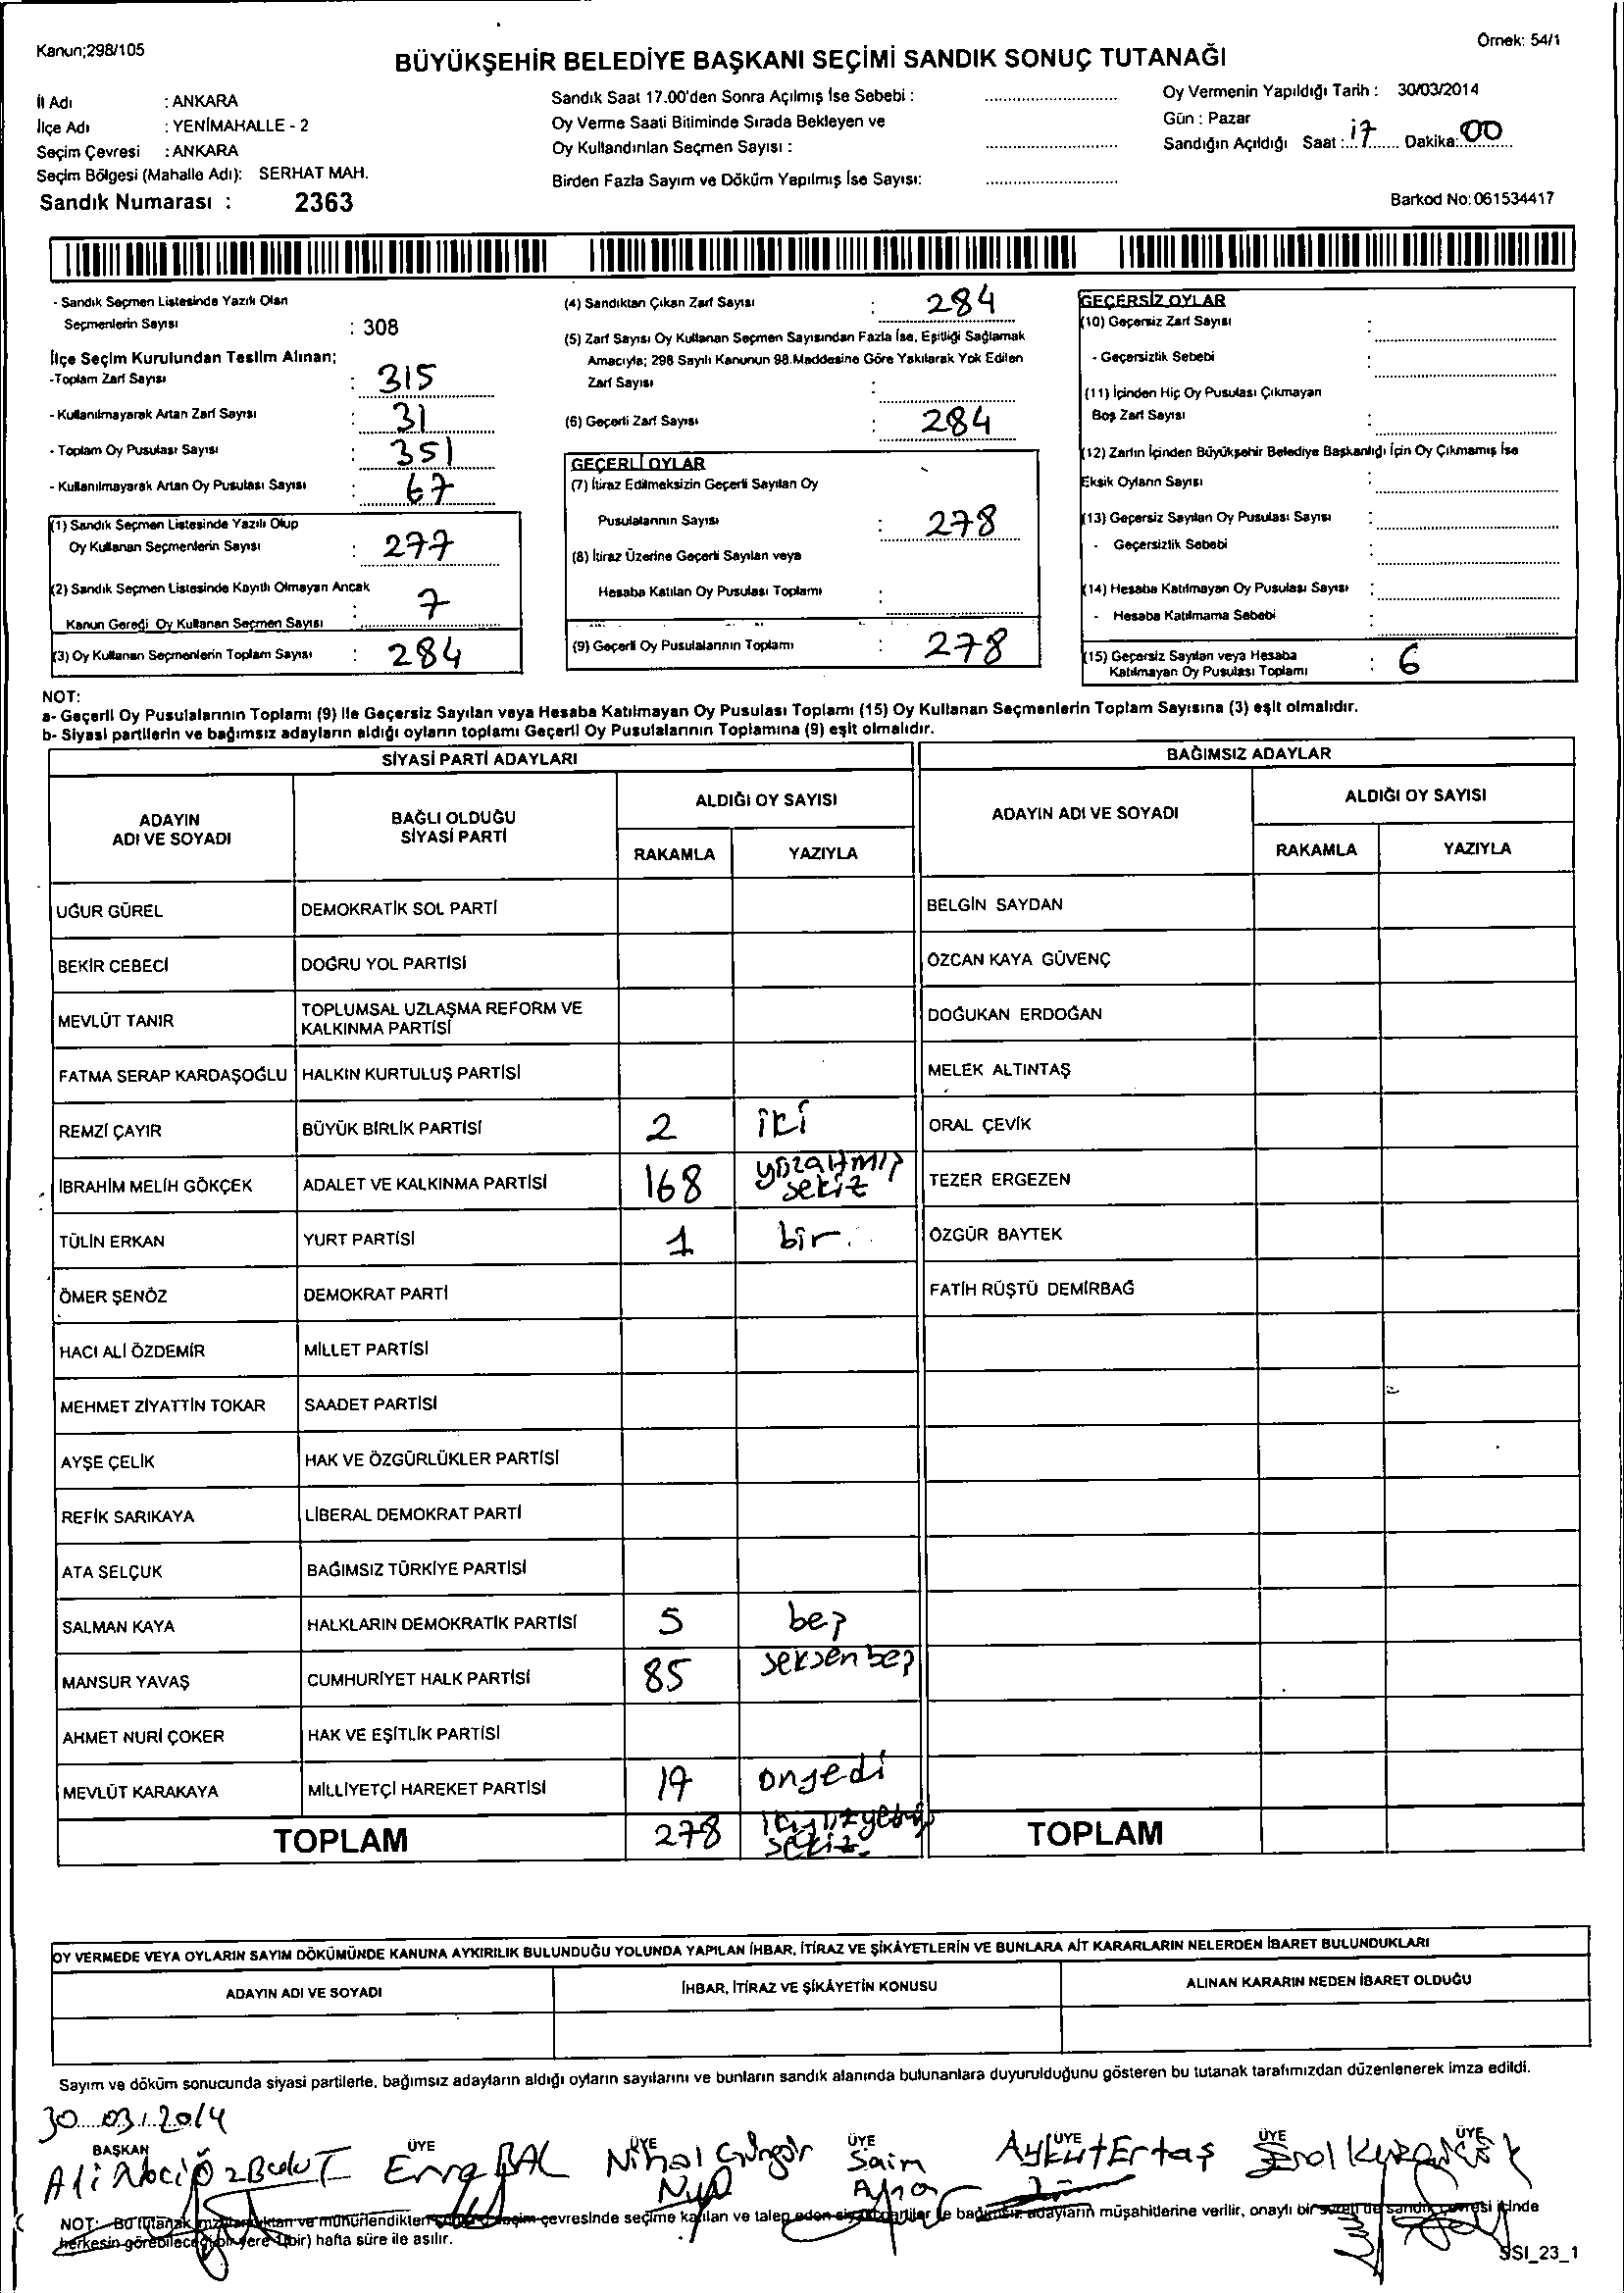 Kanun;298/105
Örnek: 54/1
BÜYÜKŞEHİR BELEDİYE BAŞKANI SEÇİMİ SANDIK SONUÇ TUTANAĞI
İl Adı : ANKARA
İlçe Adı : YENİMAHALLE - 2
Seçim Çevresi : ANKARA
Seçim Bölgesi (Mahalle Adı): SERHAT MAH.
Sandık Numarası : 2363
Sandık Saat 17.00'den Sonra Açılmış İse Sebebi :
Oy Verme Saati Bitiminde Sırada Bekleyen ve
Oy Kullandırılan Seçmen Sayısı :
Birden Fazla Sayım ve Döküm Yapılmış İse Sayısı:
Oy Vermenin Yapıldığı Tarih : 30/03/2014
Gün : Pazar
Sandığın Açıldığı Saat : 17 Dakika: 00
Barkod No: 061534417
- Sandık Seçmen Listesinde Yazılı Olan
Seçmenlerin Sayısı : 308
İlçe Seçim Kurulundan Teslim Alınan;
-Toplam Zarf Sayısı : 315
- Kullanılmayarak Artan Zarf Sayısı : 31
- Toplam Oy Pusulası Sayısı : 351
- Kullanılmayarak Artan Oy Pusulası Sayısı : 67
(1) Sandık Seçmen Listesinde Yazılı Olup
Oy Kullanan Seçmenlerin Sayısı : 277
(2) Sandık Seçmen Listesinde Kayıtlı Olmayan Ancak
Kanun Gereği Oy Kullanan Seçmen Sayısı : 7
(3) Oy Kullanan Seçmenlerin Toplam Sayısı : 284
(4) Sandıktan Çıkan Zarf Sayısı : 284
(5) Zarf Sayısı Oy Kullanan Seçmen Sayısından Fazla İse, Eşitliği Sağlamak
Amacıyla; 298 Sayılı Kanunun 98.Maddesine Göre Yakılarak Yok Edilen
Zarf Sayısı :
(6) Geçerli Zarf Sayısı : 284
GEÇERLİ OYLAR
(7) İtiraz Edilmeksizin Geçerli Sayılan Oy
Pusulalarının Sayısı : 278
(8) İtiraz Üzerine Geçerli Sayılan veya
Hesaba Katılan Oy Pusulası Toplamı :
(9) Geçerli Oy Pusulalarının Toplamı : 278
GEÇERSİZ OYLAR
(10) Geçersiz Zarf Sayısı :
- Geçersizlik Sebebi :
(11) İçinden Hiç Oy Pusulası Çıkmayan
Boş Zarf Sayısı :
(12) Zarfın İçinden Büyükşehir Belediye Başkanlığı İçin Oy Çıkmamış İse
Eksik Oyların Sayısı :
(13) Geçersiz Sayılan Oy Pusulası Sayısı :
- Geçersizlik Sebebi :
(14) Hesaba Katılmayan Oy Pusulası Sayısı :
- Hesaba Katılmama Sebebi :
(15) Geçersiz Sayılan veya Hesaba
Katılmayan Oy Pusulası Toplamı : 6
NOT:
a- Geçerli Oy Pusulalarının Toplamı (9) ile Geçersiz Sayılan veya Hesaba Katılmayan Oy Pusulası Toplamı (15) Oy Kullanan Seçmenlerin Toplam Sayısına (3) eşit olmalıdır.
b- Siyasi partilerin ve bağımsız adayların aldığı oyların toplamı Geçerli Oy Pusulalarının Toplamına (9) eşit olmalıdır.
SİYASİ PARTİ ADAYLARI
BAĞIMSIZ ADAYLAR
ADAYIN ADI VE SOYADI
BAĞLI OLDUĞU SİYASİ PARTİ
ALDIĞI OY SAYISI
RAKAMLA YAZIYLA
ADAYIN ADI VE SOYADI
ALDIĞI OY SAYISI
RAKAMLA YAZIYLA
UĞUR GÜREL DEMOKRATİK SOL PARTİ BELGİN SAYDAN
BEKİR CEBECİ DOĞRU YOL PARTİSİ ÖZCAN KAYA GÜVENÇ
MEVLÜT TANIR TOPLUMSAL UZLAŞMA REFORM VE KALKINMA PARTİSİ DOĞUKAN ERDOĞAN
FATMA SERAP KARDAŞOĞLU HALKIN KURTULUŞ PARTİSİ MELEK ALTINTAŞ
REMZİ ÇAYIR BÜYÜK BİRLİK PARTİSİ 2 iki ORAL ÇEVİK
İBRAHİM MELİH GÖKÇEK ADALET VE KALKINMA PARTİSİ 168 yüzaltmış sekiz TEZER ERGEZEN
TÜLİN ERKAN YURT PARTİSİ 1 bir. ÖZGÜR BAYTEK
ÖMER ŞENÖZ DEMOKRAT PARTİ FATİH RÜŞTÜ DEMİRBAĞ
HACI ALİ ÖZDEMİR MİLLET PARTİSİ
MEHMET ZİYATTİN TOKAR SAADET PARTİSİ
AYŞE ÇELİK HAK VE ÖZGÜRLÜKLER PARTİSİ
REFİK SARIKAYA LİBERAL DEMOKRAT PARTİ
ATA SELÇUK BAĞIMSIZ TÜRKİYE PARTİSİ
SALMAN KAYA HALKLARIN DEMOKRATİK PARTİSİ 5 beş
MANSUR YAVAŞ CUMHURİYET HALK PARTİSİ 85 seksenbeş
AHMET NURİ ÇOKER HAK VE EŞİTLİK PARTİSİ
MEVLÜT KARAKAYA MİLLİYETÇİ HAREKET PARTİSİ 17 onyedi
TOPLAM 278 ikiyüzyetmiş sekiz. TOPLAM
OY VERMEDE VEYA OYLARIN SAYIM DÖKÜMÜNDE KANUNA AYKIRILIK BULUNDUĞU YOLUNDA YAPILAN İHBAR, İTİRAZ VE ŞİKÂYETLERİN VE BUNLARA AİT KARARLARIN NELERDEN İBARET BULUNDUKLARI
ADAYIN ADI VE SOYADI İHBAR, İTİRAZ VE ŞİKÂYETİN KONUSU ALINAN KARARIN NEDEN İBARET OLDUĞU
Sayım ve döküm sonucunda siyasi partilerle, bağımsız adayların aldığı oyların sayılarını ve bunların sandık alanında bulunanlara duyurulduğunu gösteren bu tutanak tarafımızdan düzenlenerek imza edildi.
30.03.2014
BAŞKAN ÜYE ÜYE ÜYE ÜYE ÜYE ÜYE
Ali Özbulut Emre BAL Nihal Güngör Saim Aykut Ertaş Erol
NOT:- Bu tutanak imzalandıktan ve mühürlendikten sonra seçim çevresinde seçime katılan ve talep eden siyasi partiler ile bağımsız adayların müşahitlerine verilir, onaylı bir sureti de sandık çevresi içinde
herkesin görebileceği bir yere (bir) hafta süre ile asılır.
SSI_23_1